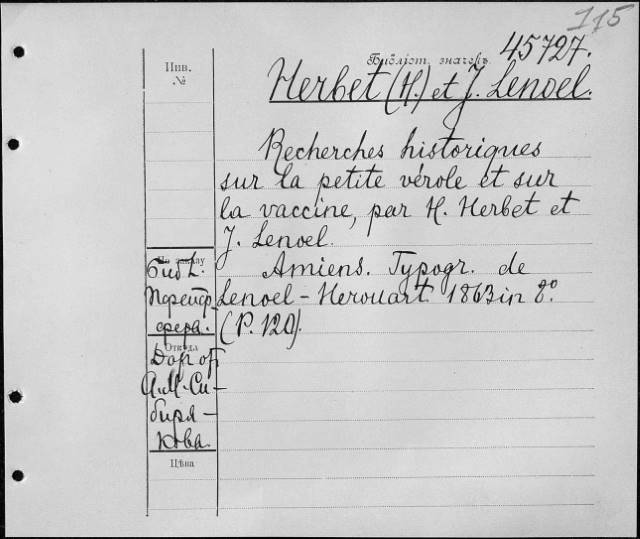 115
45727.
Библіот. значекъ
Инв.
№
Herbet (H.) et J. Lenoel.
Recherches historiques
sur la petite vérole et sur
la vaccine, par H. Herbet et
J. Lenoel.
Amiens. Typogr. de
Lenoel-Herouart 1863 in 8º.
(P. 120).
По заказу
Библ.
Откуда
А.М. Си-
биря-
кова.
Цѣна